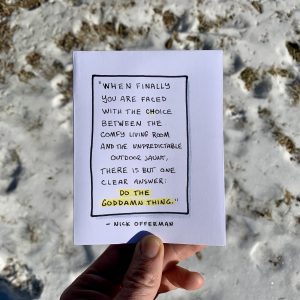 "WHEN FINALLY
YOU ARE FACED
WITH THE CHOICE
BETWEEN THE
COMFY LIVING ROOM
AND THE UNPREDICTABLE
OUTDOOR JAUNT,
THERE IS BUT ONE
CLEAR ANSWER:
DO THE
GODDAMN THING."
- NICK OFFERMAN